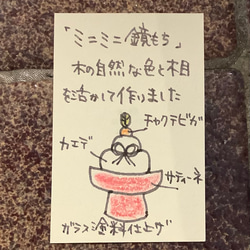 「ミニミニ鏡もち」
木の自然な色と木目
を活かして作りました
チャクテビガ
カエデ
サティーネ
ガラス塗料仕上げ